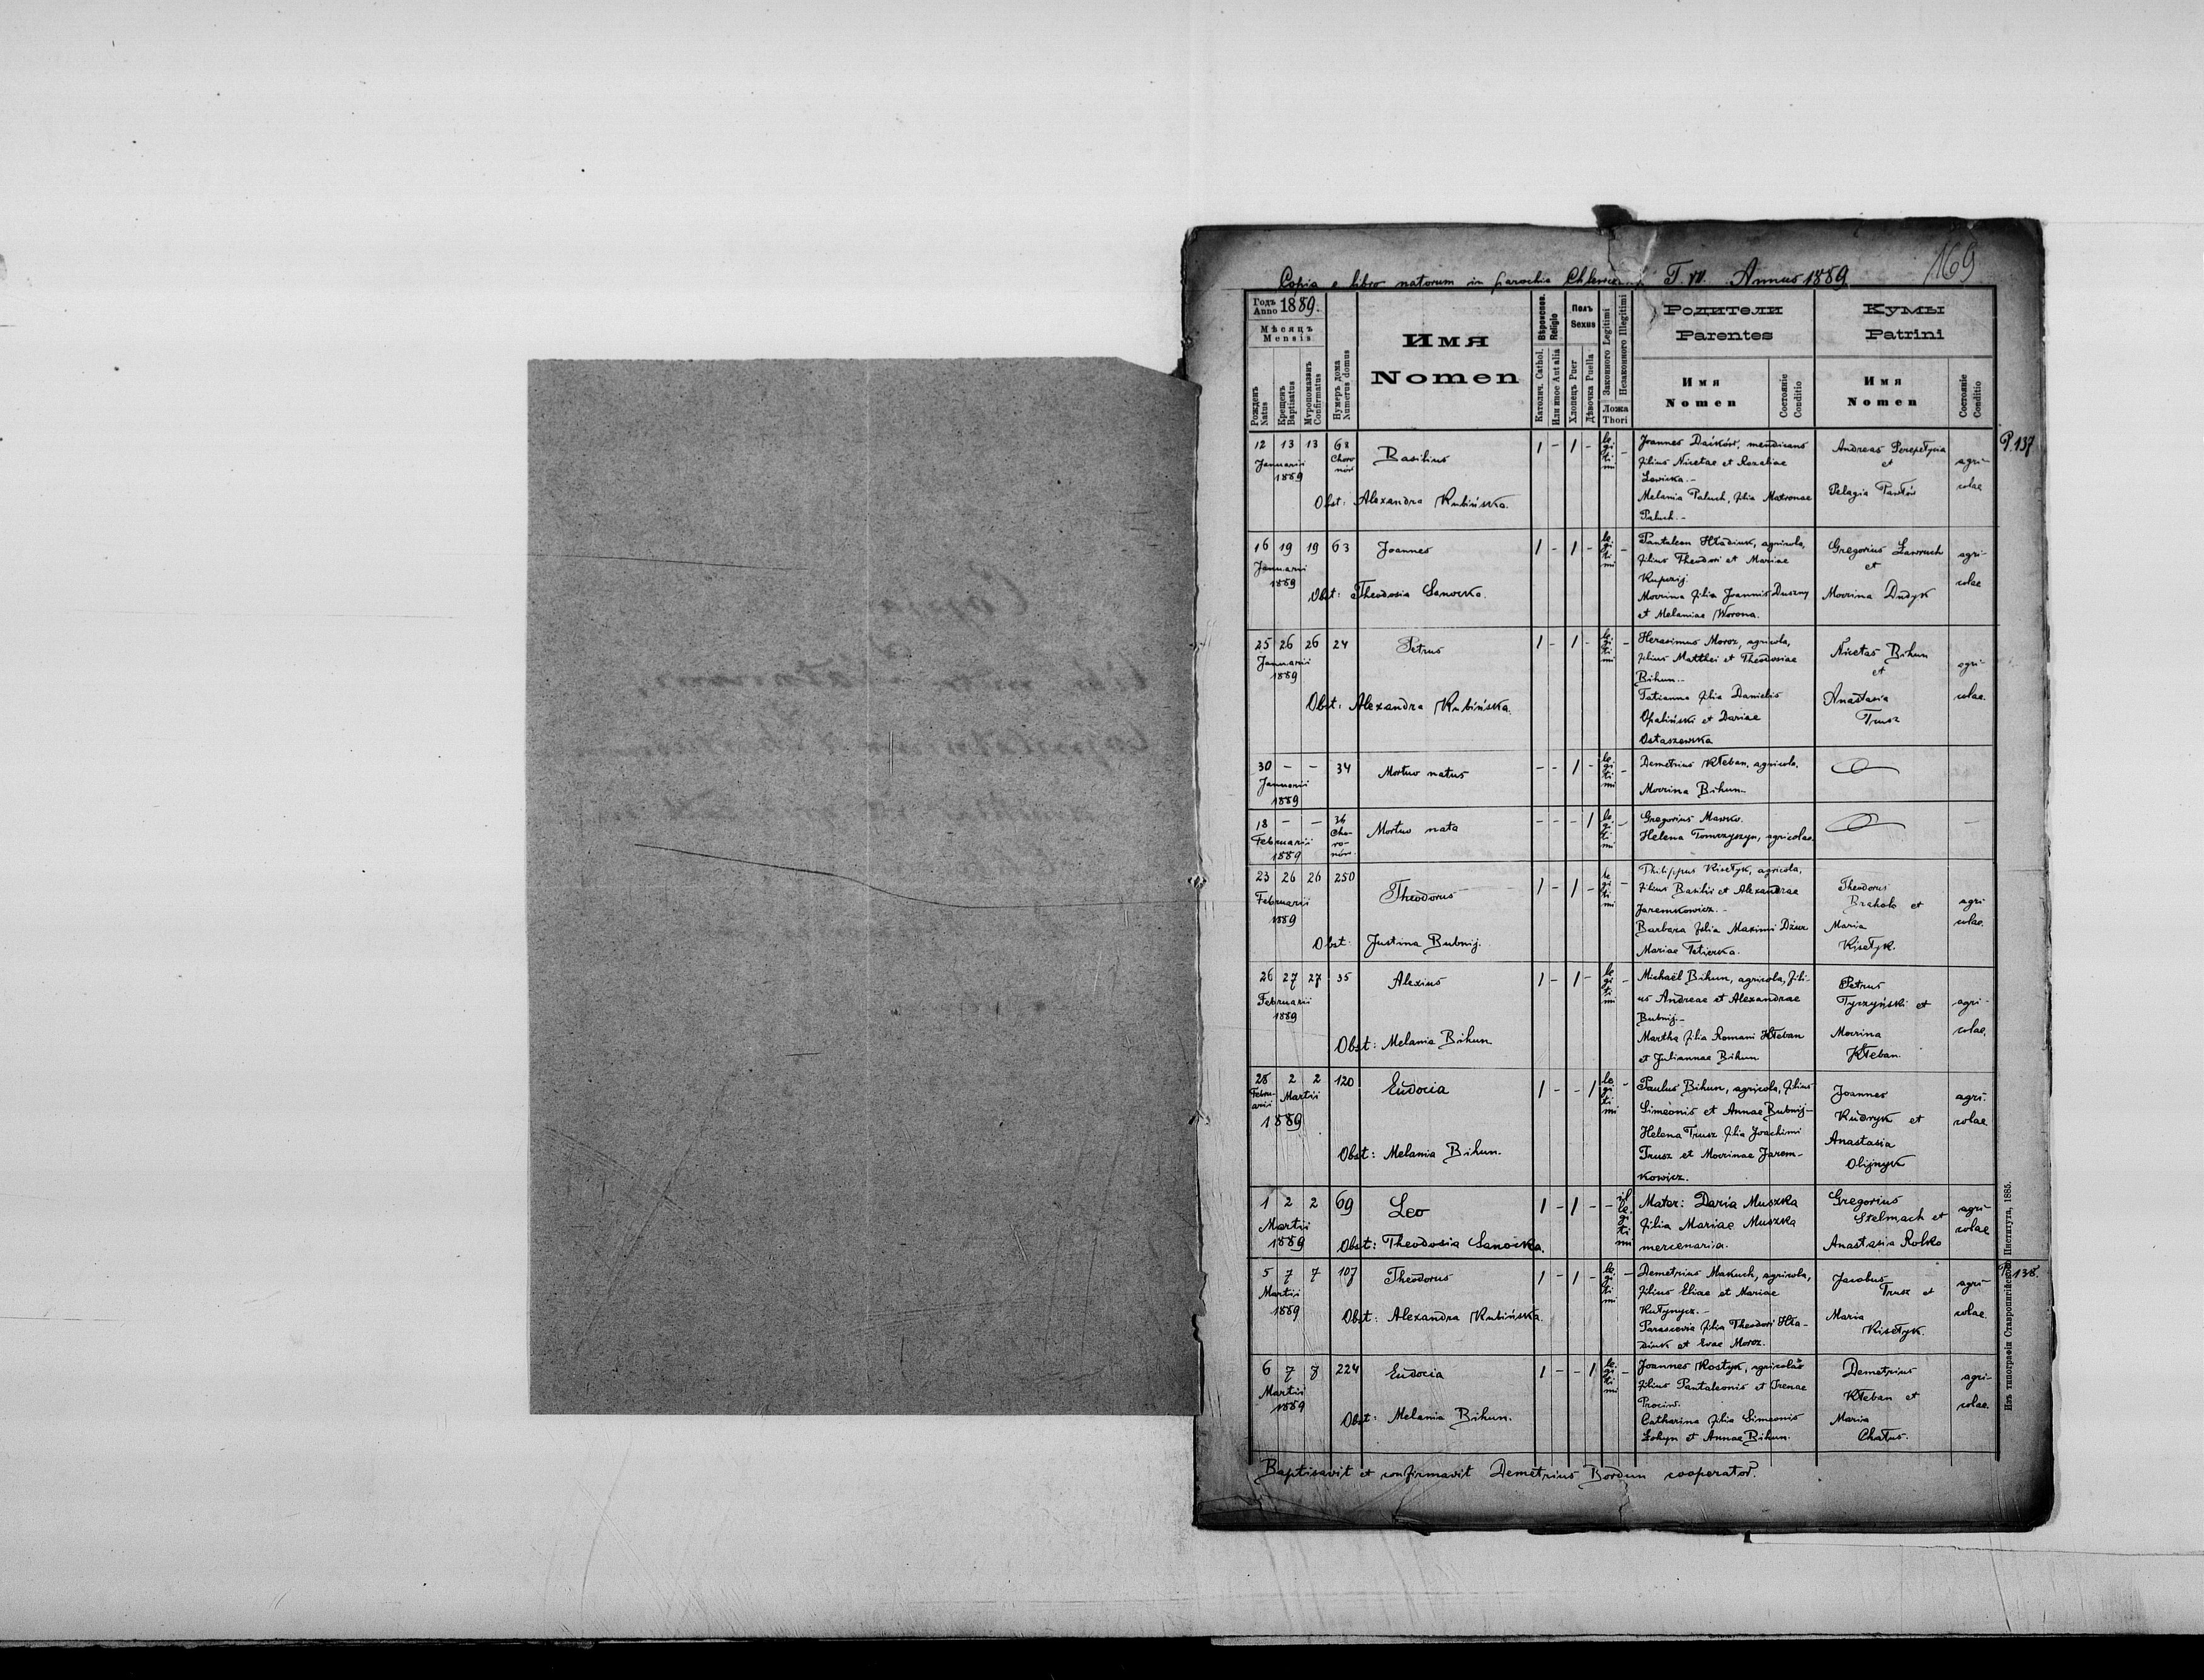 169
Copia e libro natorum in parochia T. VII. Annus 1889
Годъ Anno 1889.
Мѣсяцъ Mensis
Рожденъ Natus
Крещенъ Baptisatus
Мѵропомазанъ Confirmatus
Нумеръ дома Numerus domus
Имя
Nomen
Вѣроисповѣд. Religio
Католич. Cathol.
Или иное Aut alia
Полъ Sexus
Хлопецъ Puer
Дѣвочка Puella
Законного Legitimi
Незаконного Illegitimi
Ложа Thori
Родители
Parentes
Имя Nomen
Состояніе Conditio
Кумы
Patrini
Имя Nomen
Состояніе Conditio
12 13 13 68 Basilius 1 - 1 - legitimi -
Januarii 1889 Choronów
Obst: Alexandra Kubińska.
Joannes mendicans
filius Nicetae et Rozaliae
Lewicka.-
Melania Paluch, filia Matronae
Paluch.-
Andreas Perepełycia
et
Pelagia
agricolae
P. 137
16 19 19 63 Joannes 1 - 1 - legitimi -
Januarii 1889
Obst: Theodosia Sanocka.
Pantaleon Hładiuk, agricola,
filius Theodori et Mariae
Kuperij
Movrina filia Joannis Duszny
et Melaniae Worona.
Gregorius Ławruch
et
Movrina Dudyk
agricolae
25 26 26 24 Petrus 1 - 1 - legitimi -
Januarii 1889
Obst: Alexandra Kubińska.
Herasimus Moroz, agricola,
filius Matthei et Theodosiae
Bihun.-
Tatianna filia Danielis
Opaliński et Dariae
Ostaszewska
Nicetas Bihun
et
Anastasia
Trusz
agricolae.
30 - - 34 Mortuo natus - - 1 - legitimi -
Januarii 1889
Demetrius Kłeban, agricola,
Movrina Bihun.
18 - - 36 Mortuo nata - - - 1 legitimi -
Februarii 1889 Choronów.
Gregorius
Helena Tomczyszyn, agricolae.
23 26 26 250 Theodorus 1 - 1 - legitimi -
Februarii 1889
Obst: Justina Bubnij.
Philippus Kisełyk, agricola,
filius Basilii et Alexandrae
Jaremkowicz.-
Barbara filia Maximi Dżur
Mariae Tetierka.
Theodorus
et
Maria
Kisełyk.
agricolae.
26 27 27 35 Alexius 1 - 1 - legitimi -
Februarii 1889
Obst: Melania Bihun
Michaël Bihun, agricola, fili-
us Andreae et Alexandrae
Bubnij.-
Martha filia Romani Kłeban
et Juliannae Bihun
Petrus
Tyrzyński et
Movrina
Kłeban.
agricolae.
28 2 2 120 Eudocia 1 - - 1 legitimi -
Februarii Martii 1889
Obst: Melania Bihun.
Paulus Bihun, agricola, filius
Simeonis et Annae Bubnij-
Helena Trusz filia Joachimi
Trusz et Movrinae Jarem-
kowicz.
Joannes
Kudryk et
Anastasia
Olijnyk
agricolae
1 2 2 69 Leo 1 - 1 - - illegitimi
Martii 1889
Obst: Theodosia Sanocka.
Mater: Daria Muszka
filia Mariae Muszka
mercenaria.
Gregorius
Stelmach et
Anastasia Rolko
agricolae
5 7 7 107 Theodorus 1 - 1 - legitimi -
Martii 1889
Obst: Alexandra Kubińska.
Demetrius Makuch, agricola,
filius Eliae et Mariae
Kutynycz.-
Parascevia filia Theodori Hła-
diuk et Evae Moroz.
Jacobus
Trusz et
Maria
Kisełyk.
agricolae
P. 138.
6 7 7 224 Eudocia 1 - - 1 legitimi -
Martii 1889
Obst: Melania Bihun.
Joannes Kostyk, agricola
filius Pantaleonis et Irenae
Catharina filia Simeonis
et Annae Bihun.
Demetrius
Kłeban et
Maria
Chatus.
agricolae.
Baptisavit et confirmavit Demetrius Bordun cooperator.
Изъ типографіи Ставропигійского Института, 1885.